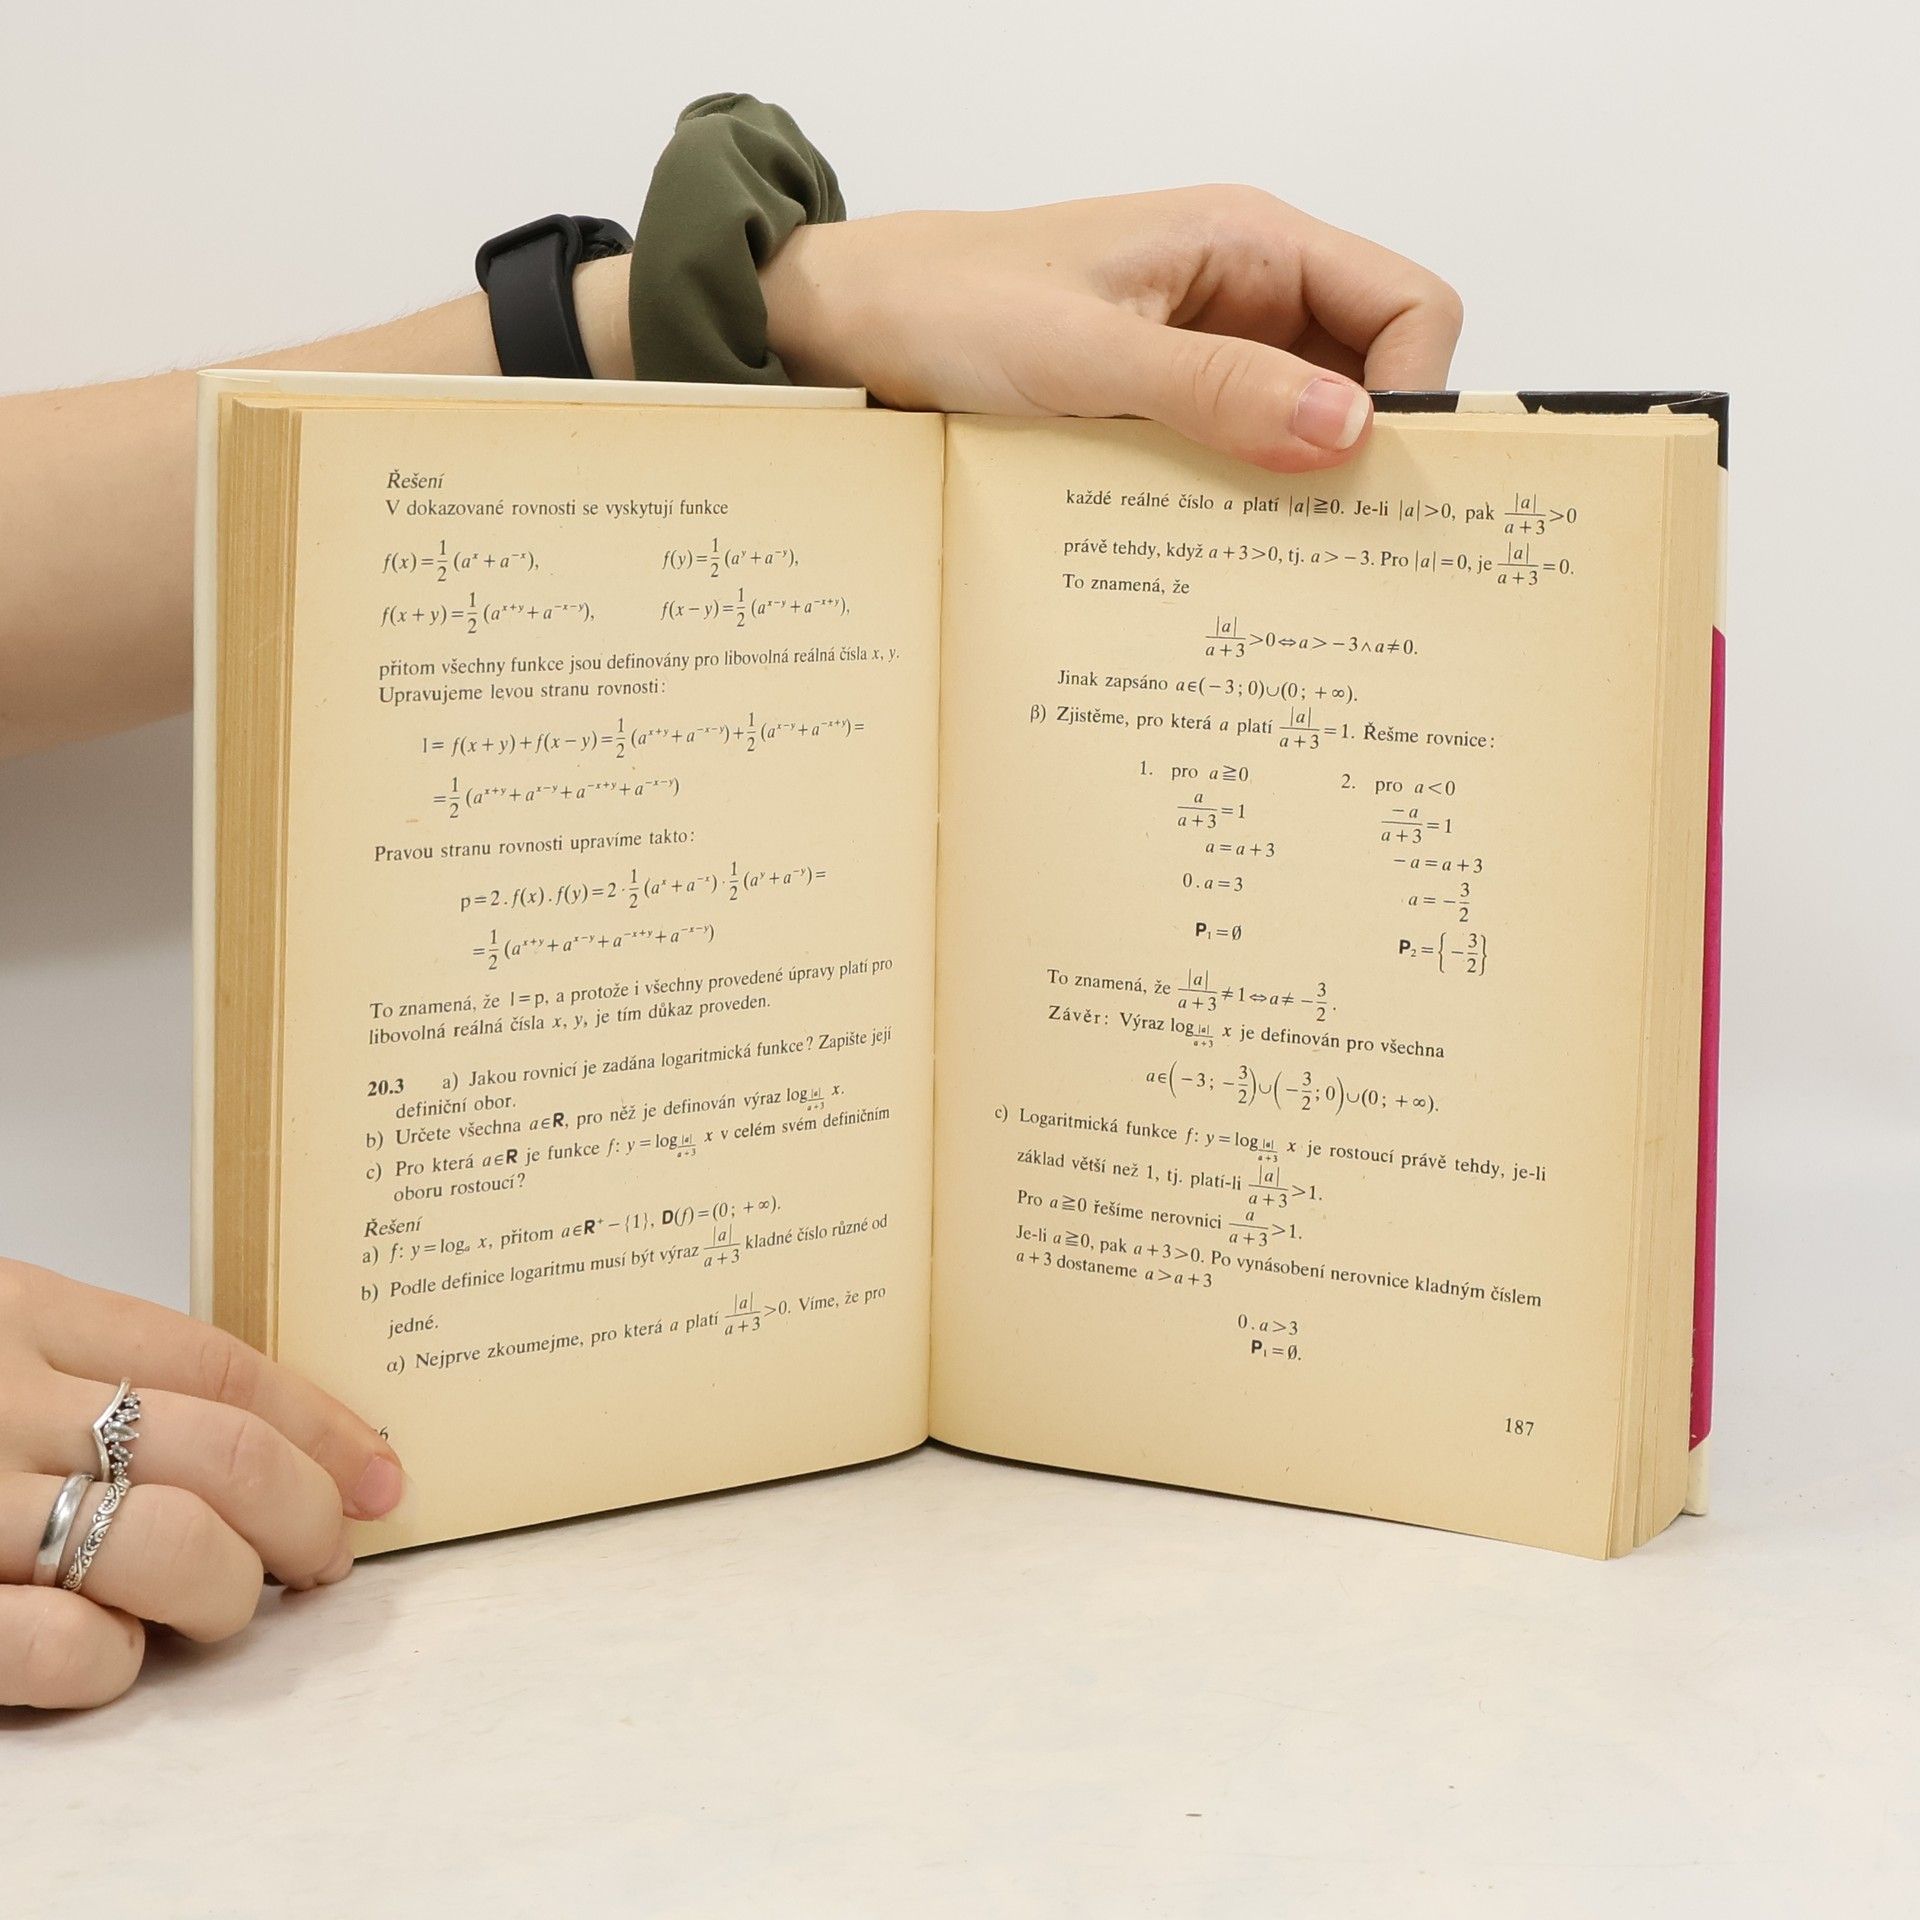 Řešení
V dokazované rovnosti se vyskytují funkce
f(x)=1/2 (a^x + a^−x), f(y)=1/2 (a^y + a^−y),
f(x+y)=1/2 (a^x+y + a^−x−y), f(x−y)=1/2 (a^x−y + a^−x+y),
přitom všechny funkce jsou definovány pro libovolná reálná čísla x, y.
Upravujeme levou stranu rovnosti:
l= f(x+y)+f(x−y)=1/2 (a^x+y + a^−x−y)+1/2 (a^x−y + a^−x+y)=
=1/2 (a^x+y + a^x−y + a^−x+y + a^−x−y)
Pravou stranu rovnosti upravíme takto:
p=2.f(x).f(y)=2·1/2 (a^x + a^−x)·1/2 (a^y + a^−y)=
=1/2 (a^x+y + a^x−y + a^−x+y + a^−x−y)
To znamená, že l=p, a protože i všechny provedené úpravy platí pro
libovolná reálná čísla x, y, je tím důkaz proveden.
20.3 a) Jakou rovnicí je zadána logaritmická funkce? Zapište její
definiční obor.
b) Určete všechna a∈R, pro něž je definován výraz log_|a|/(a+3) x.
c) Pro která a∈R je funkce f: y=log_|a|/(a+3) x v celém svém definičním
oboru rostoucí?
Řešení
a) f: y=log_a x, přitom a∈R⁺−{1}, D(f)=(0; +∞).
b) Podle definice logaritmu musí být výraz |a|/(a+3) kladné číslo různé od
jedné.
α) Nejprve zkoumejme, pro která a platí |a|/(a+3)>0. Víme, že pro
6
každé reálné číslo a platí |a|≧0. Je-li |a|>0, pak |a|/(a+3)>0
právě tehdy, když a+3>0, tj. a>−3. Pro |a|=0, je |a|/(a+3)=0.
To znamená, že
|a|/(a+3)>0⇔a>−3∧a≠0.
Jinak zapsáno a∈(−3; 0)∪(0; +∞).
β) Zjistěme, pro která a platí |a|/(a+3)=1. Řešme rovnice:
1. pro a≧0 2. pro a<0
a/(a+3)=1 −a/(a+3)=1
a=a+3 −a=a+3
0.a=3 a=−3/2
P₁=∅ P₂={−3/2}
To znamená, že |a|/(a+3)≠1⇔a≠−3/2.
Závěr: Výraz log_|a|/(a+3) x je definován pro všechna
a∈(−3; −3/2)∪(−3/2; 0)∪(0; +∞).
c) Logaritmická funkce f: y=log_|a|/(a+3) x je rostoucí právě tehdy, je-li
základ větší než 1, tj. platí-li |a|/(a+3)>1.
Pro a≧0 řešíme nerovnici a/(a+3)>1.
Je-li a≧0, pak a+3>0. Po vynásobení nerovnice kladným číslem
a+3 dostaneme a>a+3
0.a>3
P₁=∅.
187